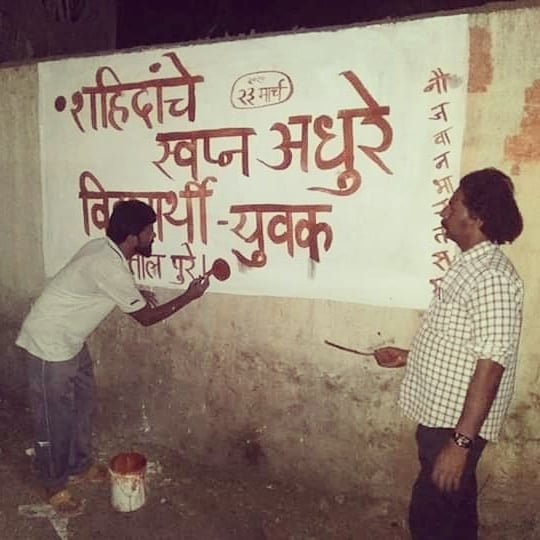 • शहिदांचे
२३ मार्च
स्वप्न अधुरे
विद्यार्थी - युवक
पुरे।
नौजवान भारत